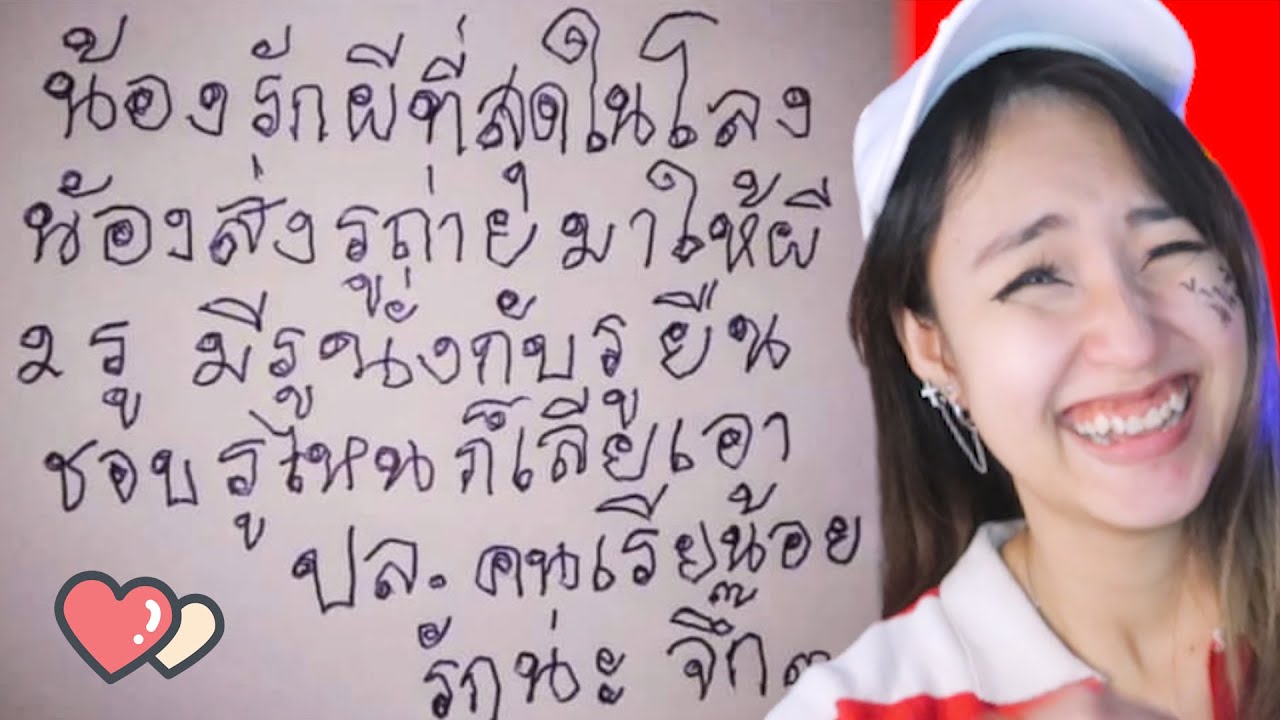 น้องรักผีที่สุดในโลง
น้องส่งรูถ่ายุ่มาให้ผี
๒ รู มีรูนั่งกับรูยืน
ชอบรูไหนก็เลียเอา
ปล. คนเรียน้อย
รักน่ะ จุ๊ก ๆ